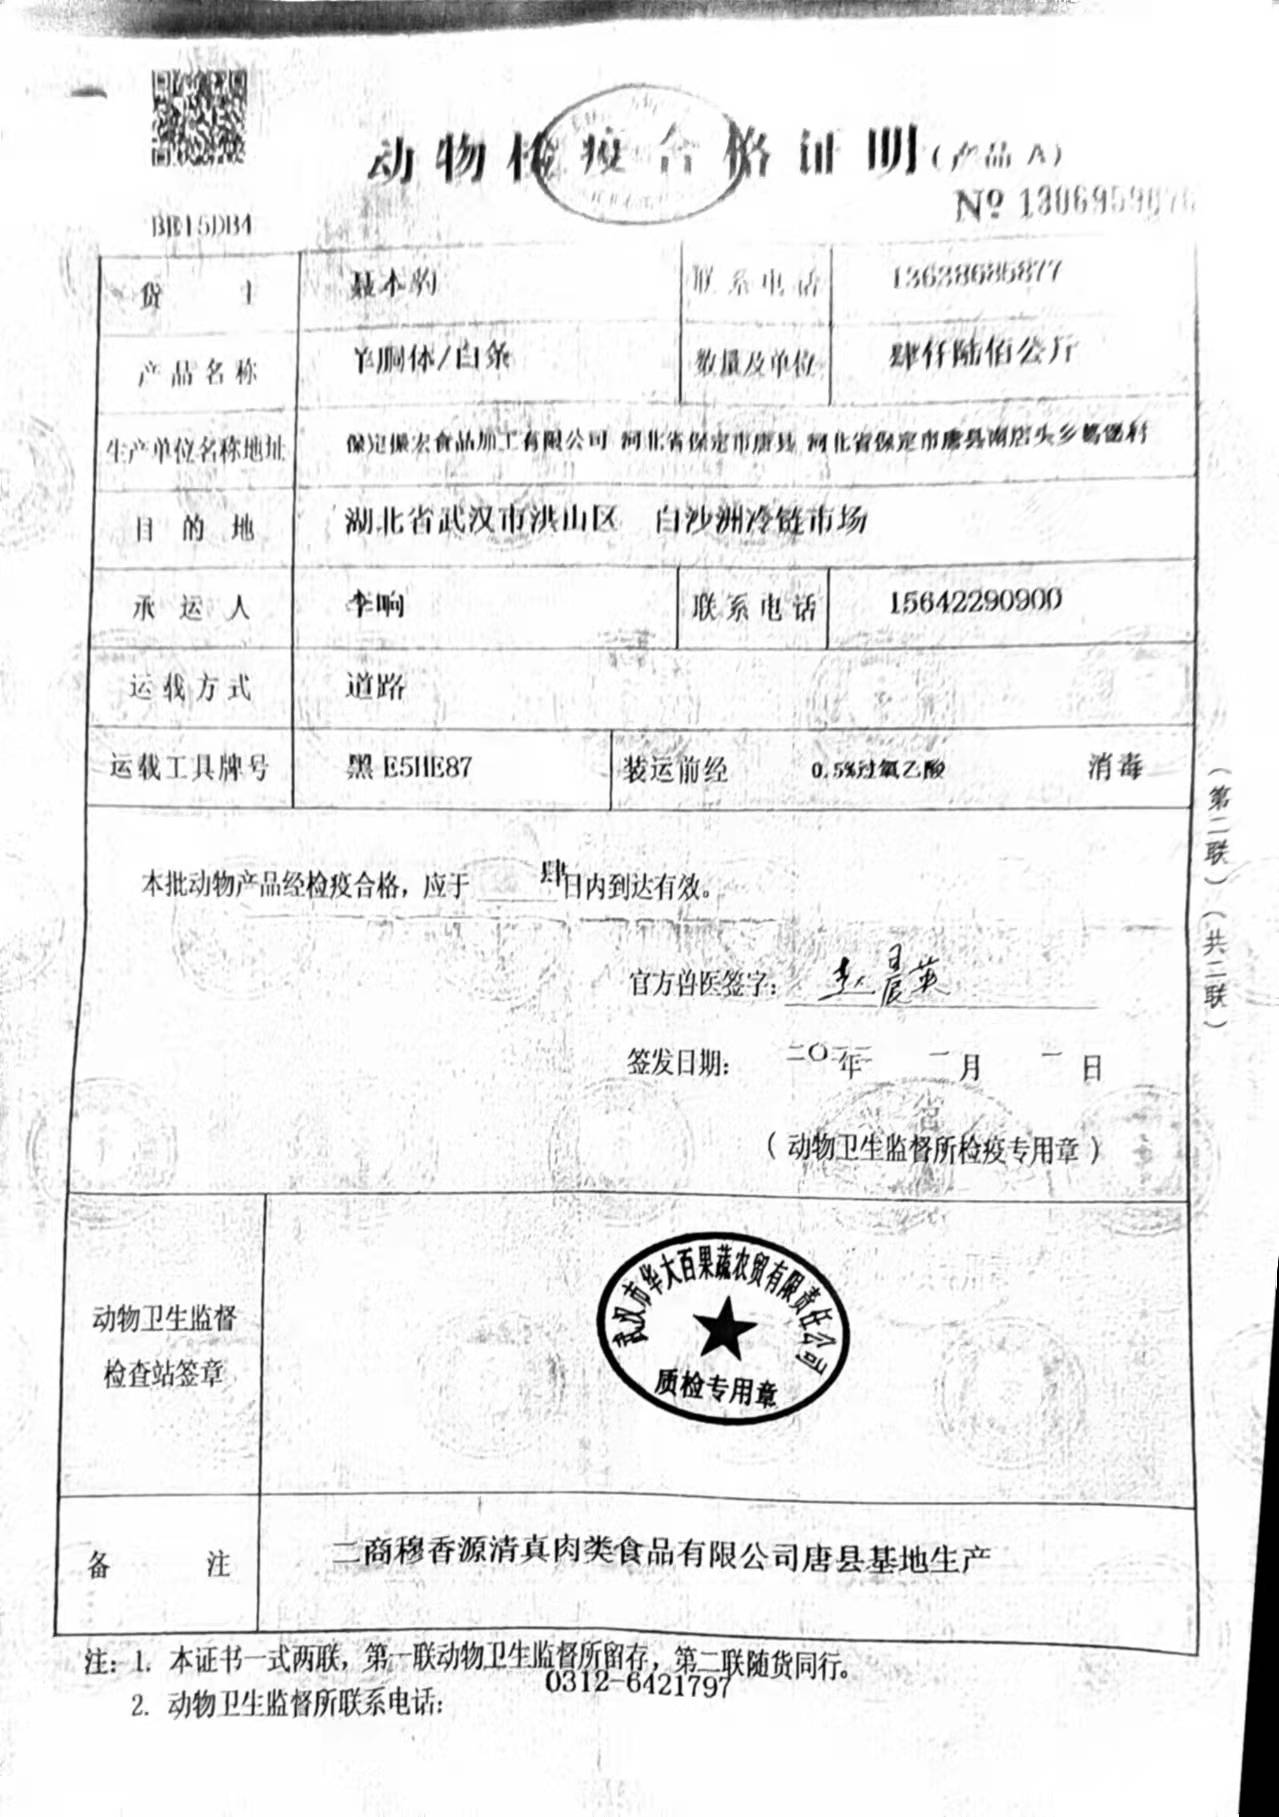 动物检疫合格证明(产品 A)
BE15DB4
№ 1306959076
货 主
聂本驹
联系电话
13638685877
产品名称
羊胴体/白条
数量及单位
肆仟陆佰公斤
生产单位名称地址
保定振宏食品加工有限公司 河北省保定市唐县 河北省保定市唐县南店头乡葛堡村
目的地
湖北省武汉市洪山区 白沙洲冷链市场
承运人
李响
联系电话
15642290900
运载方式
道路
运载工具牌号
黑 E5HE87
装运前经
0.5%过氧乙酸
消毒
本批动物产品经检疫合格，应于 肆 日内到达有效。
官方兽医签字： 赵晨英
签发日期： 二〇二二年 一月 一日
（动物卫生监督所检疫专用章）
（第二联）（共二联）
动物卫生监督
检查站签章
武汉市华大百果蔬农贸有限责任公司
质检专用章
备 注
二商穆香源清真肉类食品有限公司唐县基地生产
注：1. 本证书一式两联，第一联动物卫生监督所留存，第二联随货同行。
2. 动物卫生监督所联系电话：
0312-6421797